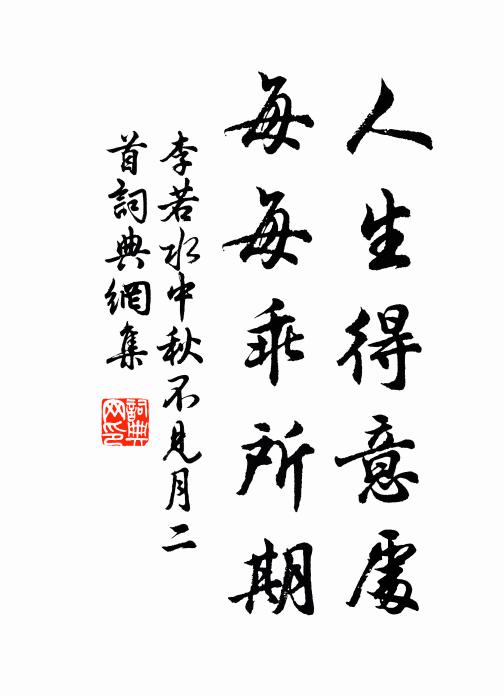 人生得意處
每每乖所期
李若水中秋不見月二
首詞典網集
詞典
网印